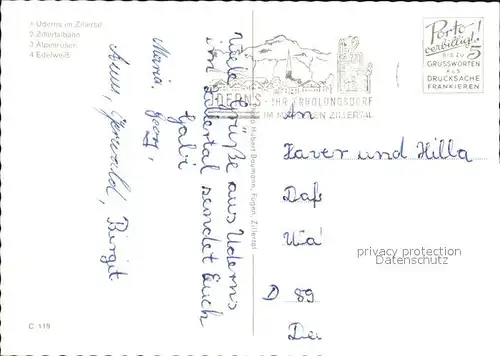 1 Uderns im Zillertal
2 Zillertalbahn
3 Alpenrosen
4 Edelweiß
Viele Grüße aus Uderns
im Zillertal sendet Euch
Gabi
Maria, Georg,
Anni, Gerwald, Birgit
UDERNS - IHR ERHOLUNGSDORF
IM ZILLERTAL
Porto-
verbilligt!
BIS ZU 5
GRUSSWORTEN
ALS
DRUCKSACHE
FRANKIEREN
Hubert Baumann, Fügen, Zillertal
An
Xaver und Hilla
privacy protection
Datenschutz
D 89
C 119